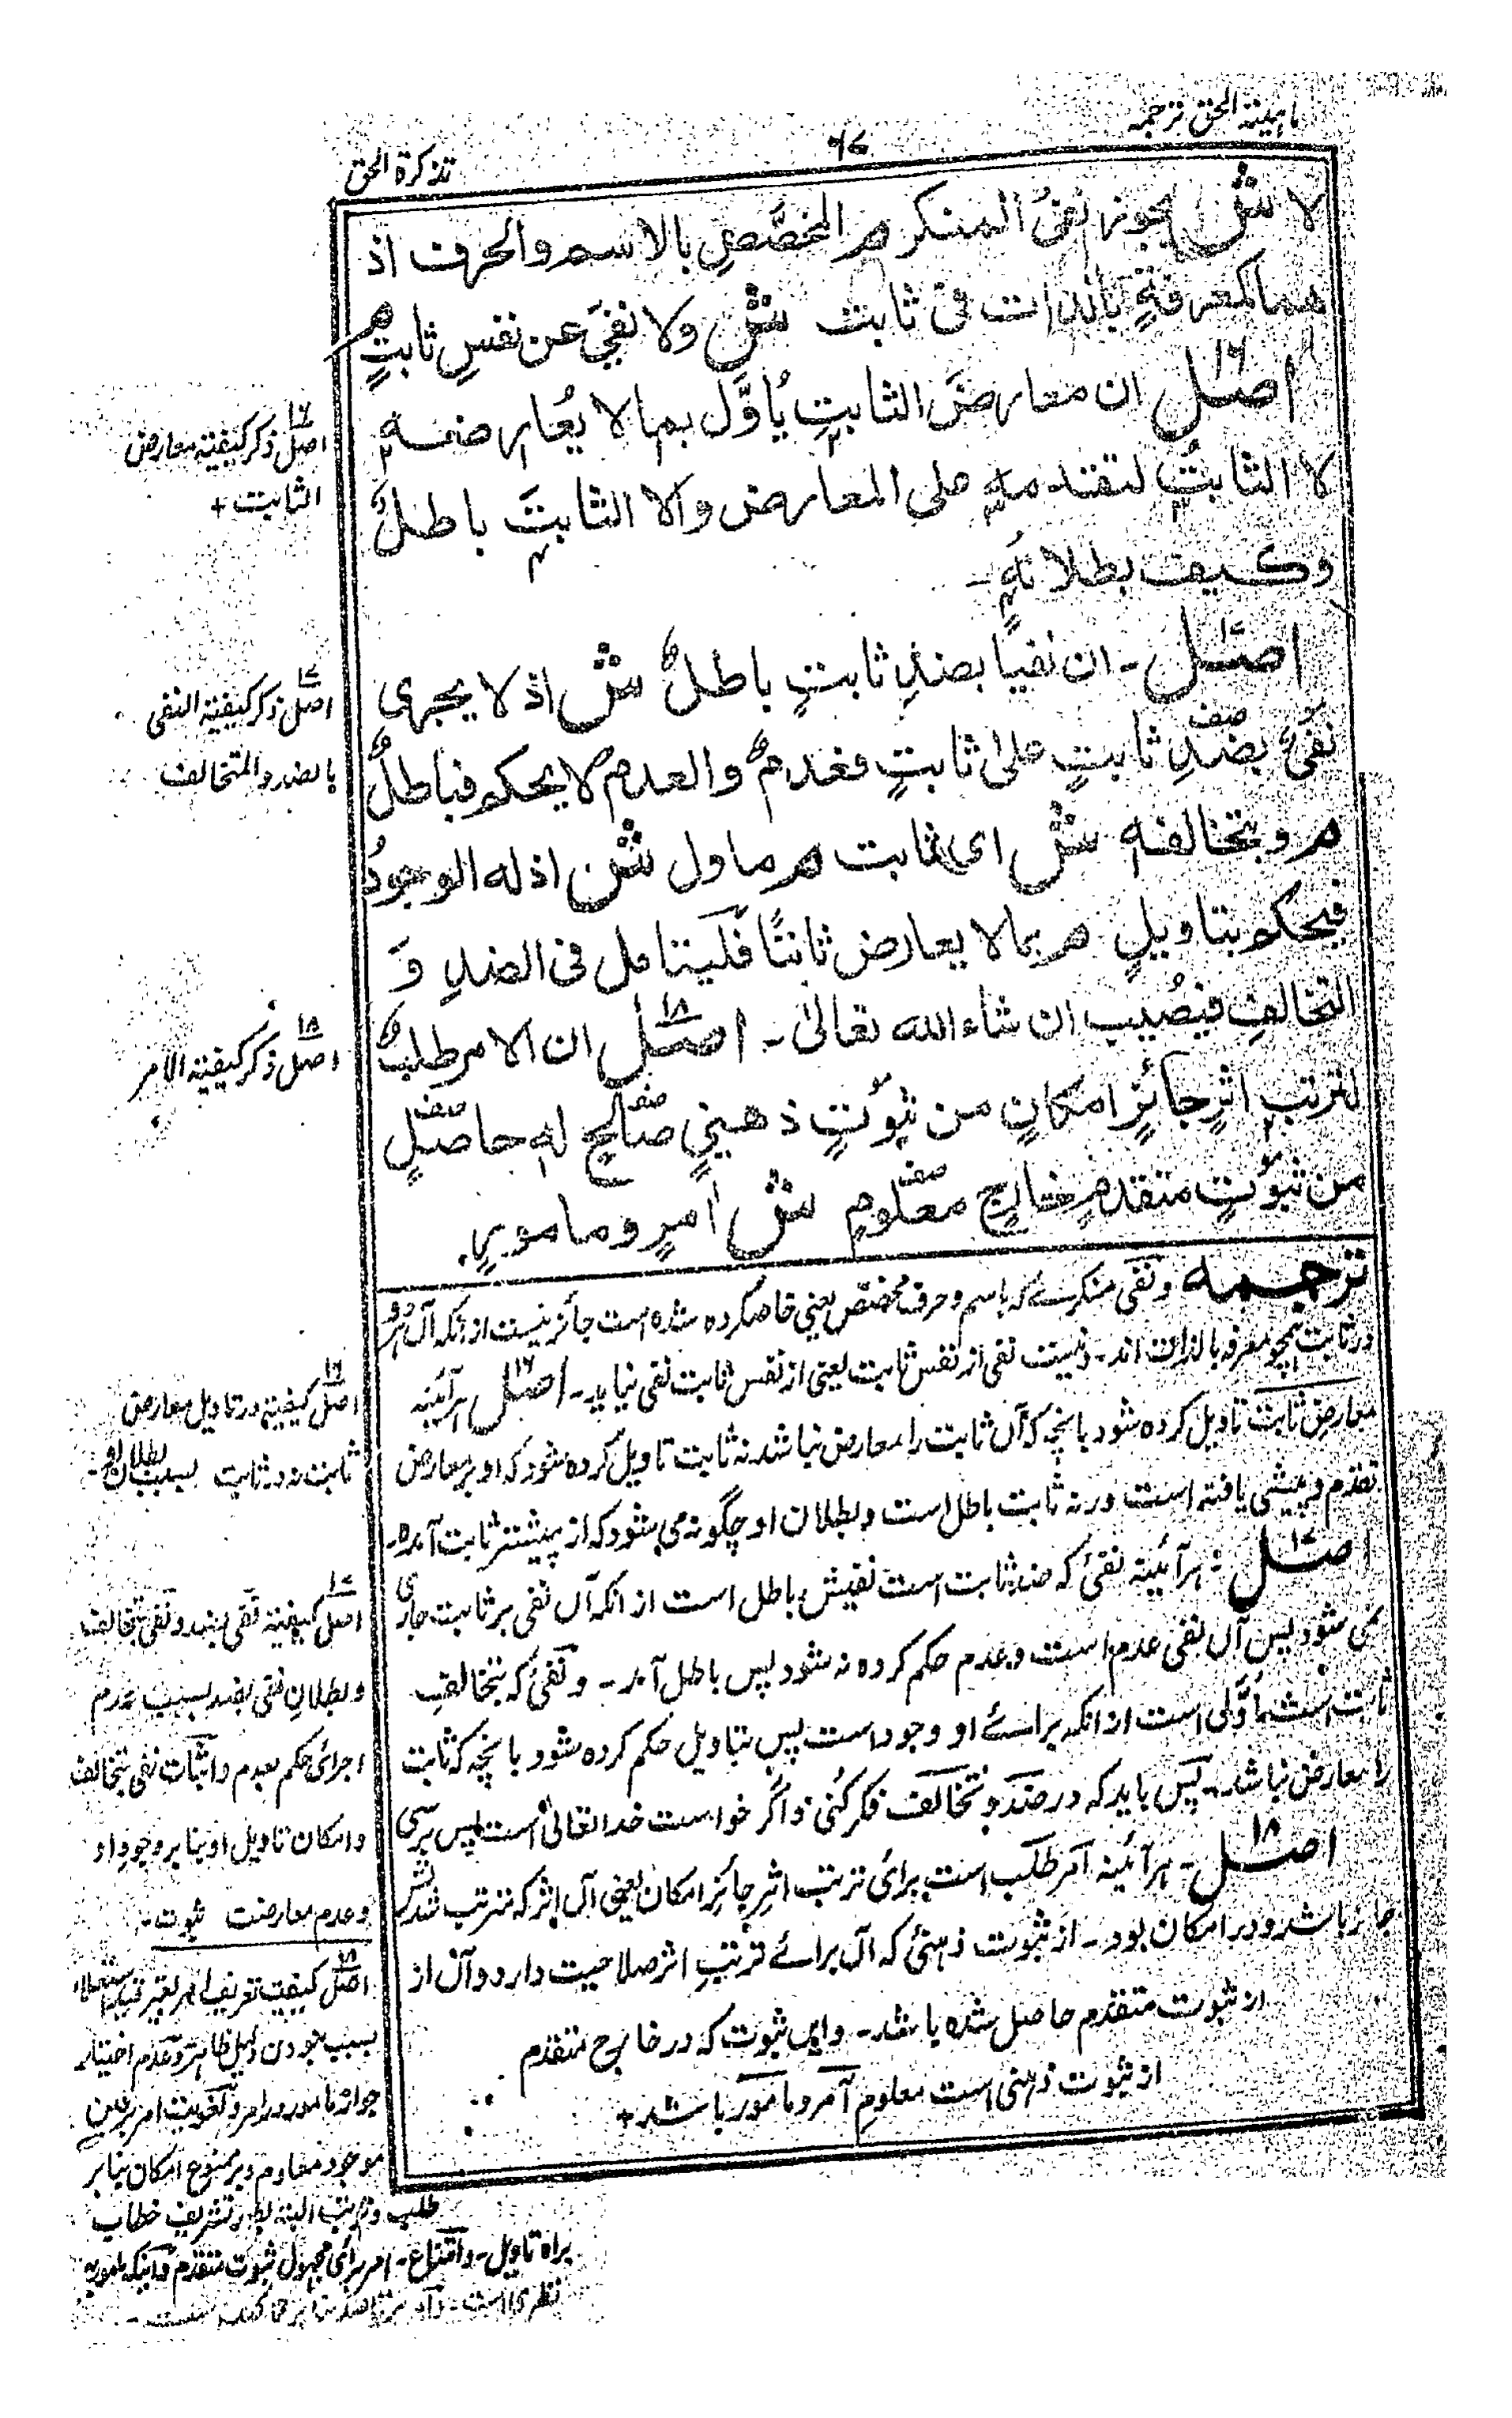 ماهیته الحق ترجمه
۹۶
تذکرة الحق
لا ش یجوز نفیُ المنکر م المخصَّصِ بالاسم والحرف اذ
هما کمعرفةٍ بالذات فی ثابت ش ولا نفیَ عن نفسِ ثابتٍ م
اصل۱۶ ان معارضَ الثابتِ یُاوَّل بما لا یُعارضه
لا الثابتُ لتقدمهٖ علی المعارض والا الثابتَ باطلٌ
وکیف بطلانُهٖ
اصل۱۷ - ان نفیا بضدِ ثابتٍ باطلٌ ش اذ لا یجری
نفیٌ بضدِ ثابتٍ علیٰ ثابتٍ فعدمٌ والعدمُ لا یحکم فباطلٌ
م وبتخالفهٖ ش ای ثابت م ماول ش اذ له الوجودُ
فیحکم بتاویلٍ م بما لا یعارض ثابتًا فلیتامل فی الضدِ وَ
التخالفِ فیُصیب ان شاء الله تعالیٰ - اصل۱۸ ان الامر طلبٌ
لترتب اثرٍ جائزٍ امکانٍ من ثبوتٍ ذهنیٍ صالحٍ لهٖ حاصلٍ
من ثبوتٍ متقدمٍ خارجٍ معلومٍ ش اٰمرٍ وماموریٍ
ترجمه ونفی منکرے که باسم وحرف مختص یعنی خاص کرده شده است جائز نیست از انکه آں هر دو
در ثابت همچو معرفه بالذات اند - ونیست نفی از نفس ثابت یعنی از نفس ثابت نفی نیاید - اصل۱۶ هرآئینه
معارض ثابت تاویل کرده شود بانچه که آں ثابت را معارض نباشد نه ثابت تاویل کرده شود که او بر معارض
تقدم و پیشی یافته است ورنه ثابت باطل است و بطلان او چگونه می شود که از پیشتر ثابت آمده -
اصل۱۷ : هرآئینه نفئ که ضد ثابت است نفیش باطل است از انکه آں نفی بر ثابت جاری
نمی شود پس آں نفی عدم است وبعدم حکم کرده نه شود پس باطل آمد - ونفئ که بتخالفِ
ثابت است مأوَّلی است از انکه براے او وجود است پس بتاویل حکم کرده شود بانچه که ثابت
را معارض نباشد - پس باید که در ضد وتخالف فکر کنی واگر خواست خدا تعالیٰ است پس برسی
اصل۱۸ - هرآئینه امر طلب است برائ ترتب اثر جائز امکان یعنی آں اثر که مترتب شدنش
جائز باشد ودر امکان بود - از ثبوت ذهنئ که آں براے ترتبِ اثر صلاحیت دارد وآں از
از ثبوت متقدم حاصل شده باشد - وایں ثبوت که در خارج متقدم
از ثبوت ذهنی است معلومِ آمر ومامور باشد +
اصل۱۶ ذکر کیفیته معارض
الثابت +
اصل۱۷ ذکر کیفیته النفی
بالضد والمتخالف
اصل۱۸ ذکر کیفیته الامر
اصل۱۶ کیفیته در تاویل معارض
ثابت نه در ثابت بسبب بطلان او -
اصل۱۷ کیفیته نفی بضد ونفی بتخالف
وبطلانِ نفی بضد بسبب عدم
اجرائ حکم بعدم واثبات نفی بتخالف
وامکان تاویل او بنا بر وجود او
وعدم معارضت ثبوت -
اصل۱۸ کیفیت تعریف امر بغیر قید استعلاء
بسبب بودن دلیل ظاهر وعدم اختیار
جواز مامور در امر
موجود معلوم وبر ممتنع امکان بنا بر
طلب وترتب البته بطور تشریف خطاب
براه تاویل - وامتناع - امر برائ مجهول ثبوت متقدم
نظری است -